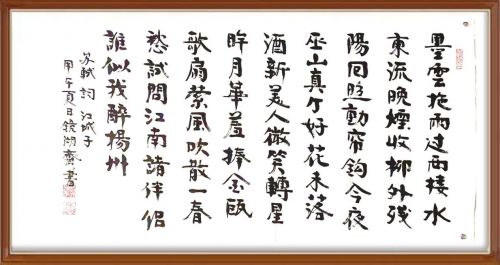 墨雲拖雨過西樓水
東流晚煙收柳外残
陽回照動帘鈎今夜
巫山真个好花未落
酒新美人微笑轉星
眸月華羞捧金甌
歌扇縈風吹散一春
愁試問江南諸伴侶
誰似我醉揚州
苏軾詞 江城子
甲午夏日鏡湖齋書